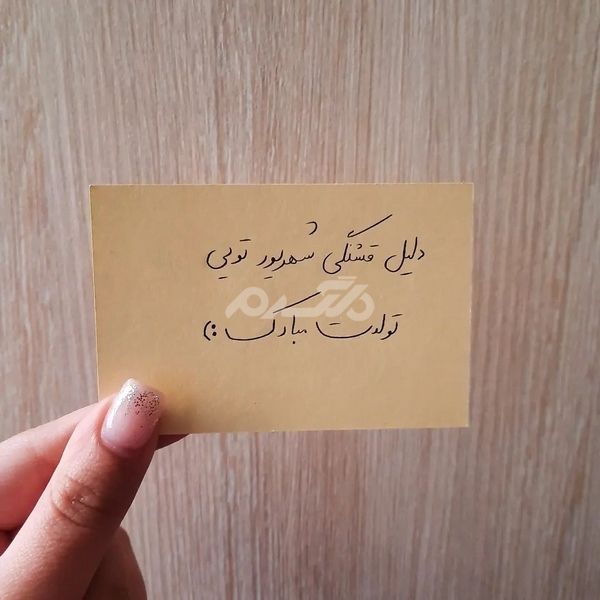 دلیل قشنگی شهریور تویی
دلگرم
تولدت مبارک :)